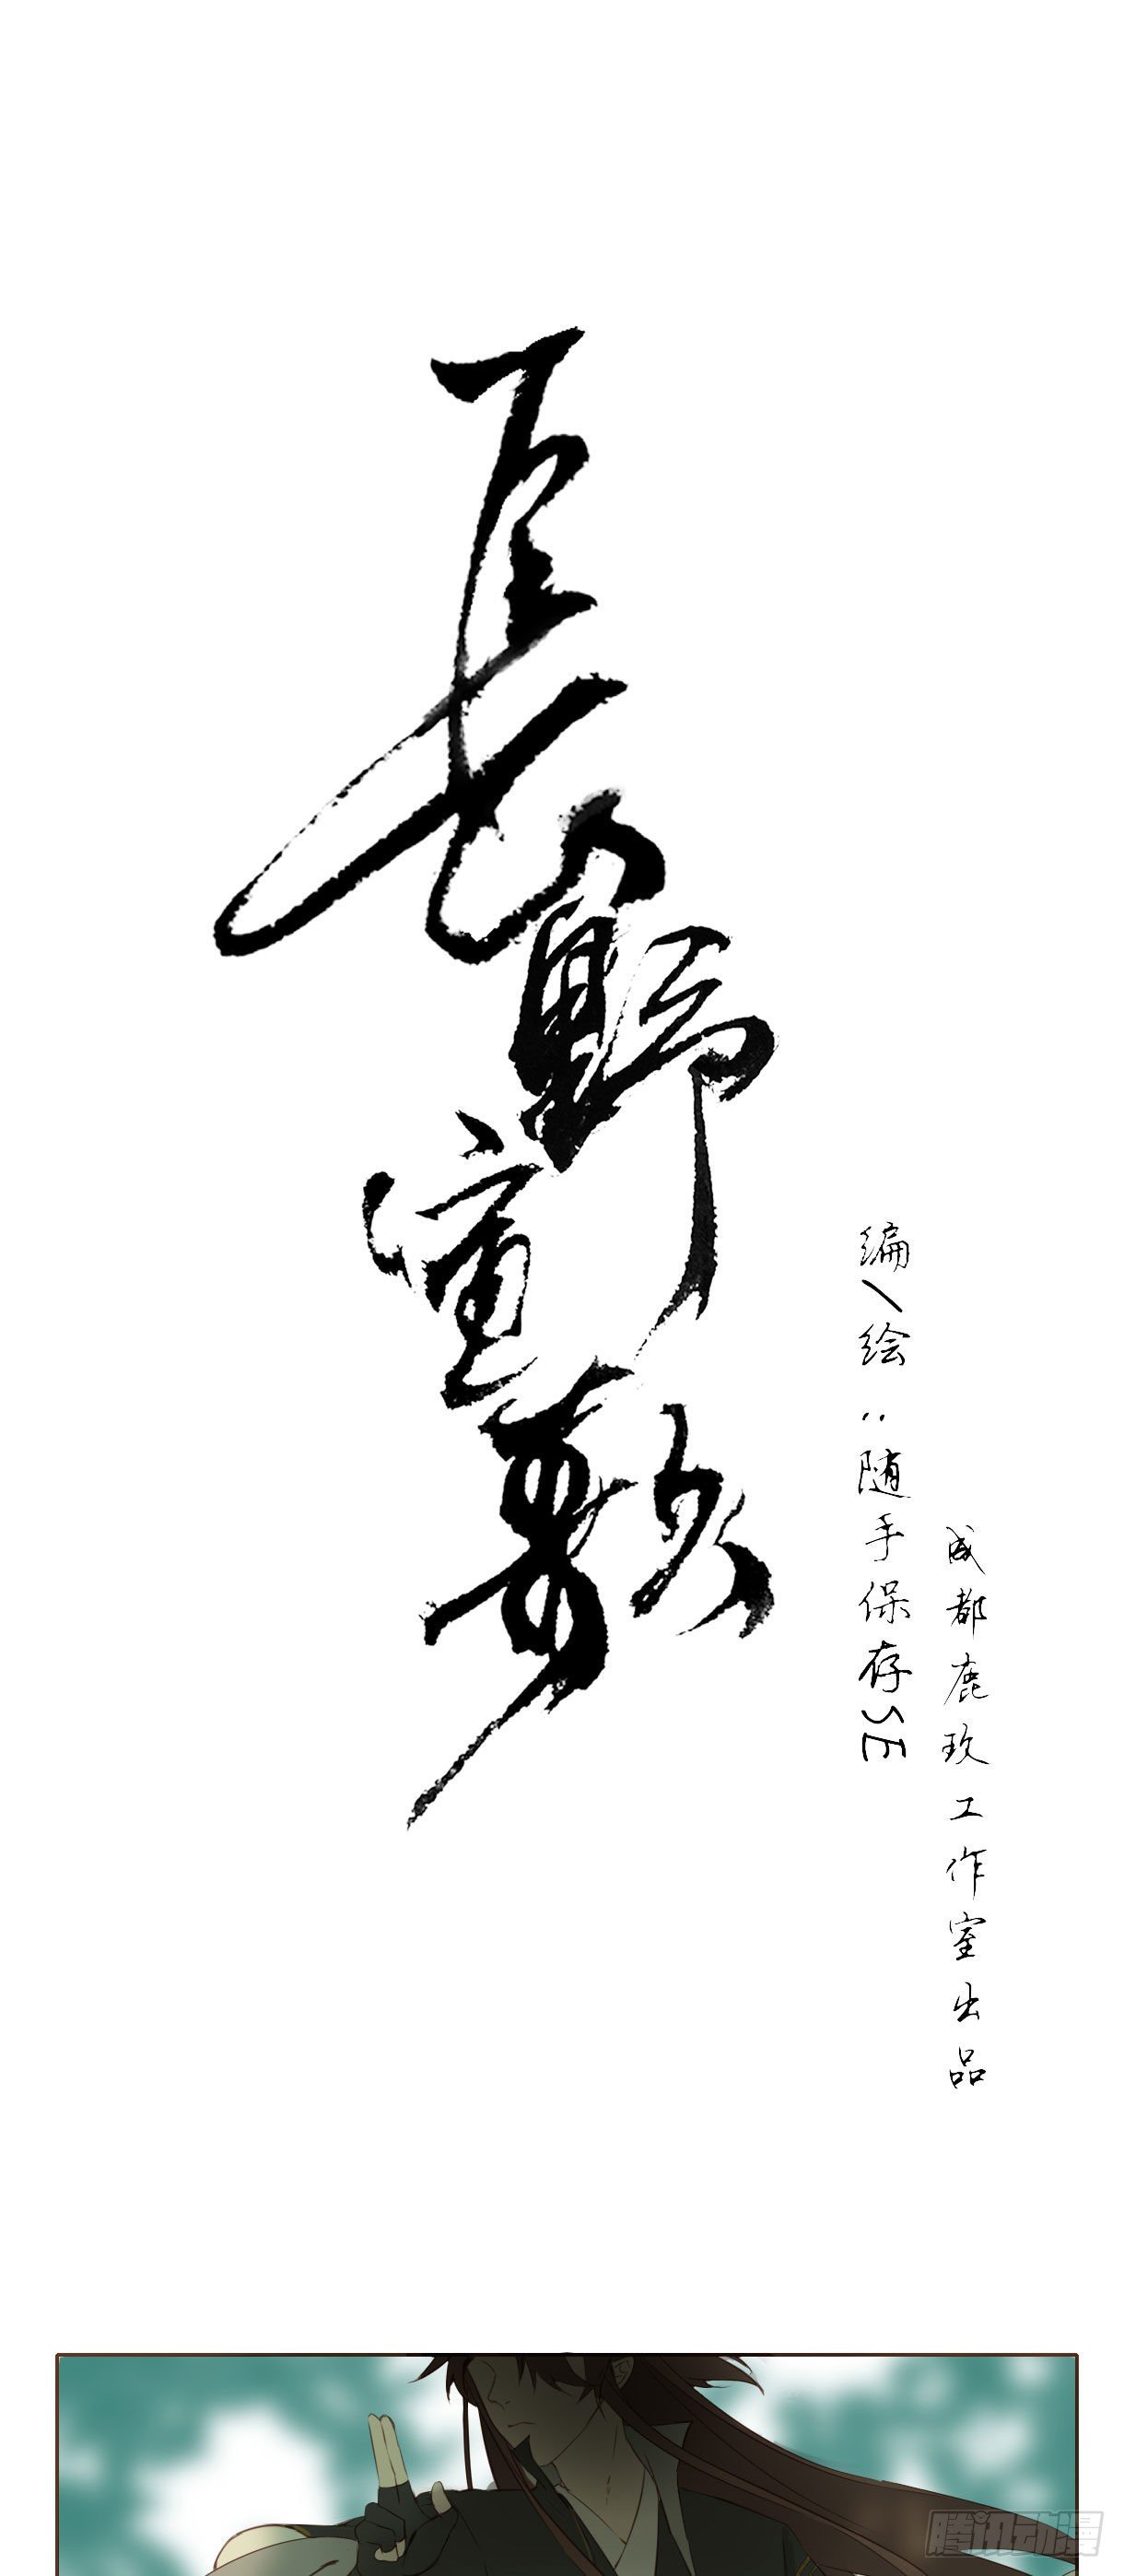 長野宣敷
编/绘:随手保存SE
成都鹿玖工作室出品
腾讯动漫